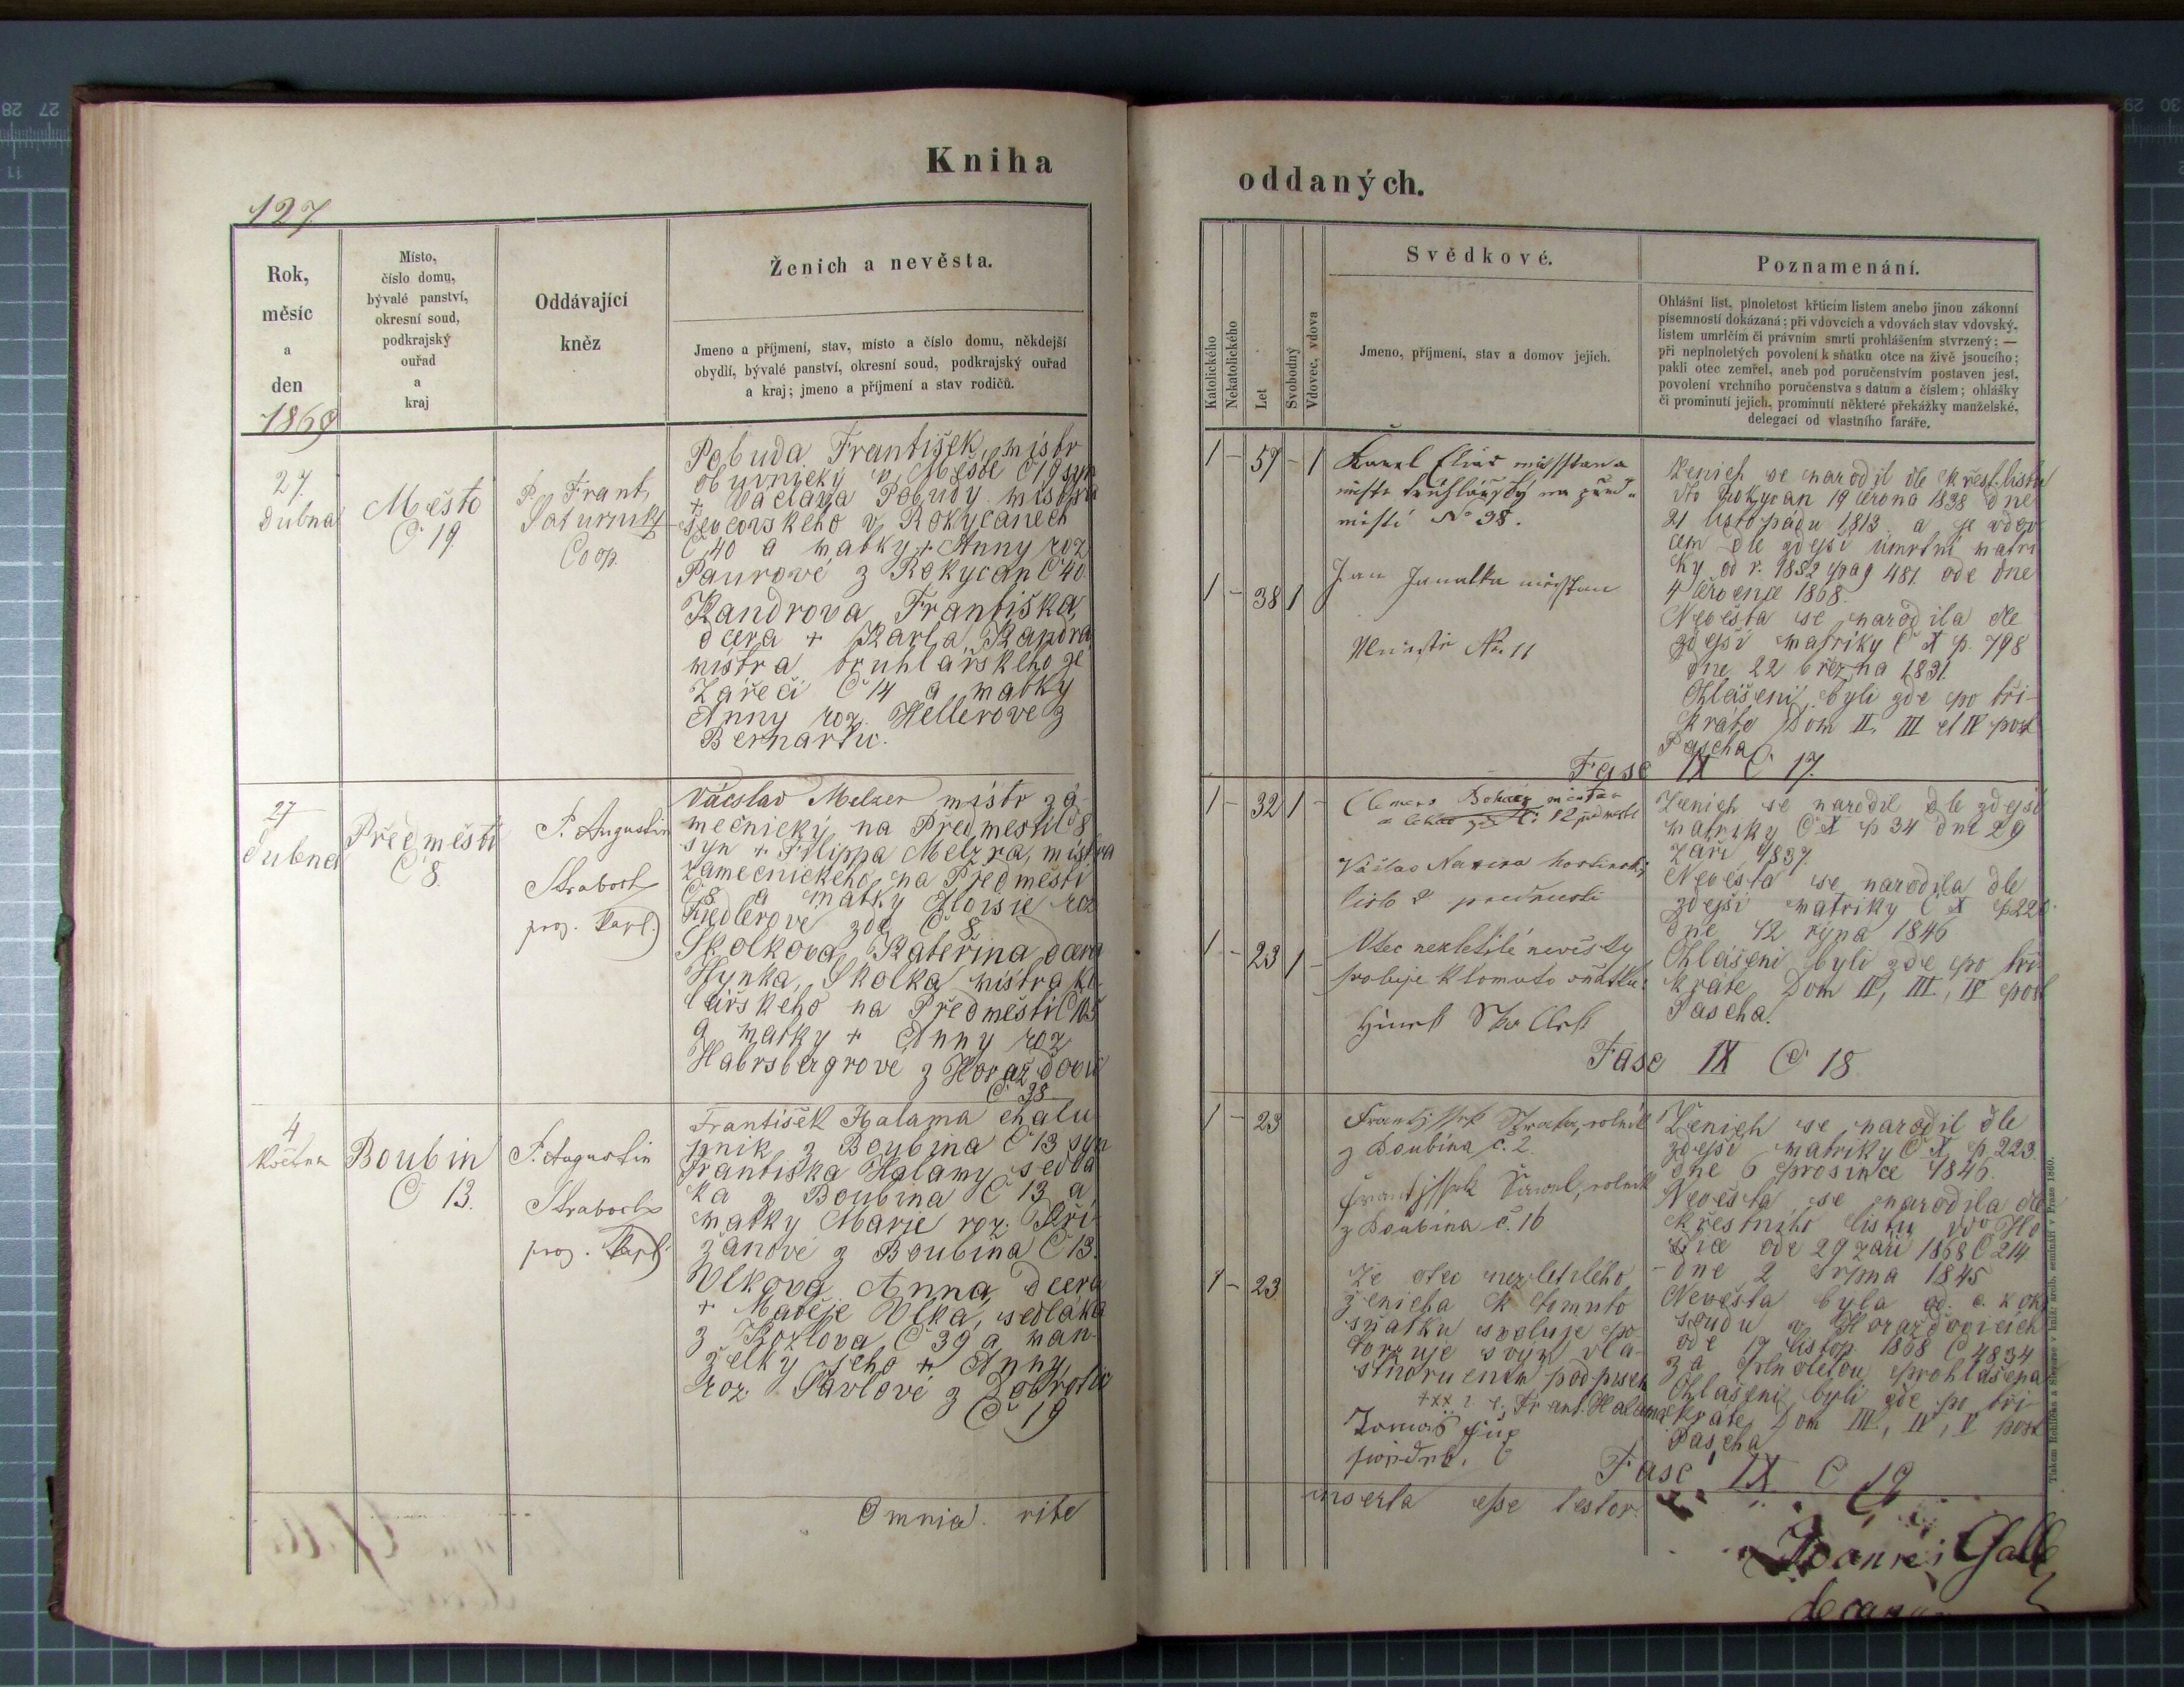 Kniha
oddaných.
127
Rok,
měsíc
a
den
1869
Místo,
číslo domu,
bývalé panství,
okresní soud,
podkrajský
ouřad
a
kraj
Oddávající
kněz
Ženich a nevěsta.
Jmeno a příjmení, stav, místo a číslo domu, někdejší
obydlí, bývalé panství, okresní soud, podkrajský ouřad
a kraj; jmeno a příjmení a stav rodičů.
27.
dubna
Město
Č 19.
P. Frant.
Saturník
Coop.
Pobuda František, mistr
obuvnický v Městě Č 19 syn
+ Václava Pobudy mistra
ševcovského v Rokycanech
Č 40 a matky + Anny roz
Paurové z Rokycan Č 40.
Kandrova Františka,
dcera + Karla Kandra
mistra truhlářského ze
Zářečí Č 14 a matky
Anny roz. Hellerove z
Bernartic.
27
dubna
Předměstí
Č 8.
P. Augustin
Straboch
proz. Kapl.)
Václav Melzer mistr zá-
mečnický na Předměstí Č 8
syn + Filippa Melzra, mistra
zámečnického na Předměstí
Č 8 a matky Aloisie roz
Fiedlerove zde Č 8
Skolkova Kateřina dcera
Hynka Skolka mistra ko
lářského na Předměstí Č
a matky + Anny roz
Habrsbergrové z Horažďovic
Č 38
4
května
Boubin
Č 13.
P. Augustin
Straboch
proz. Kapl.)
František Halama chalu
pnik z Boubina Č 13 syn
Františka Halamy sedlá
ka z Boubina Č 13 a
matky Marie roz. Kři
žanové z Boubina Č 13.
Vlkova Anna, dcera
+ Matěje Vlka, sedláka
z Kozlova Č 39 a man-
želky jeho + Anny,
roz. Pavlové z Dobrotic
Č 19
Omnia rite
Katolického
Nekatolického
Let
Svobodný
Vdovec, vdova
Svědkové.
Jmeno, příjmení, stav a domov jejich.
Poznamenání.
Ohlášní list, plnoletost křticím listem anebo jinou zákonní
písemností dokázaná; při vdovcích a vdovách stav vdovský,
listem umrlčím či právním smrti prohlášením stvrzený; —
při neplnoletých povolení k sňatku otce na živě jsoucího;
pakli otec zemřel, aneb pod poručenstvím postaven jest,
povolení vrchního poručenstva s datum a číslem; ohlášky
či prominutí jejich, prominutí některé překážky manželské,
delegaci od vlastního faráře.
1 - 57 - 1
Karel Eliáš měšťan a
mistr truhlářský na před-
městí No 38.
1 - 38 1
Jan Janatka měšťan
Město No 11
Ženich se narodil dle křest. listu
dto Rokycan 19 června 1838 dne
21 listopadu 1813 a je vdov
cem dle zdejší úmrtní matri
ky od r. 1852 pag 481 ode dne
4 července 1868.
Nevěsta se narodila dle
zdejší matriky Č X p. 798
dne 22 března 1831.
Ohlášeni byli zde po tři-
kráte Dom II, III et IV post
Pascha
Fasc IX Č 17.
1 - 32 1 -
Č: 12 předměstí
Václav
1 - 23 1 -
Otec nezletilé nevěsty
svoluje k tomuto sňatku:
Ženich se narodil dle zdejší
matriky Č X p 34 dne 29
Září 1837.
Nevěsta se narodila dle
zdejší matriky Č X p 220.
dne 12 října 1846
Ohlášeni byli zde po tři
kráte Dom II, III, IV post
Pascha.
Fasc IX Č 18
1 - 23
Frantissek Straka, rolník
z Boubína č. 2.
Frantissek rolník
z Boubína č. 16
1 - 23
Že otec nezletilého
ženicha k tomuto
sňatku svoluje po-
tvrzuje svým vla-
stnoručním podpisem
+++ Frant. Halama
Tomáš
svědek.
Ženich se narodil dle
zdejší matriky Č X p 223.
dne 6 prosince 1846.
Nevěsta se narodila dle
křestního listu ddo Ho
ode 29 září 1868 Č 214
dne 2 srpna 1845
Nevěsta byla od. c. k ok.
soudu v Horažďovicích
ode 17 listop. 1868 Č 4834
za plnoletou prohlášena
Ohlášeni byli zde po tři
kráte Dom III, IV, V post
Pascha
Fasc IX Č 19
inserta esse testor.
Joannes Gall
decanus
Tiskem Rohlíčka a Sieverse v knih. arcib. semináři v Praze 1860.